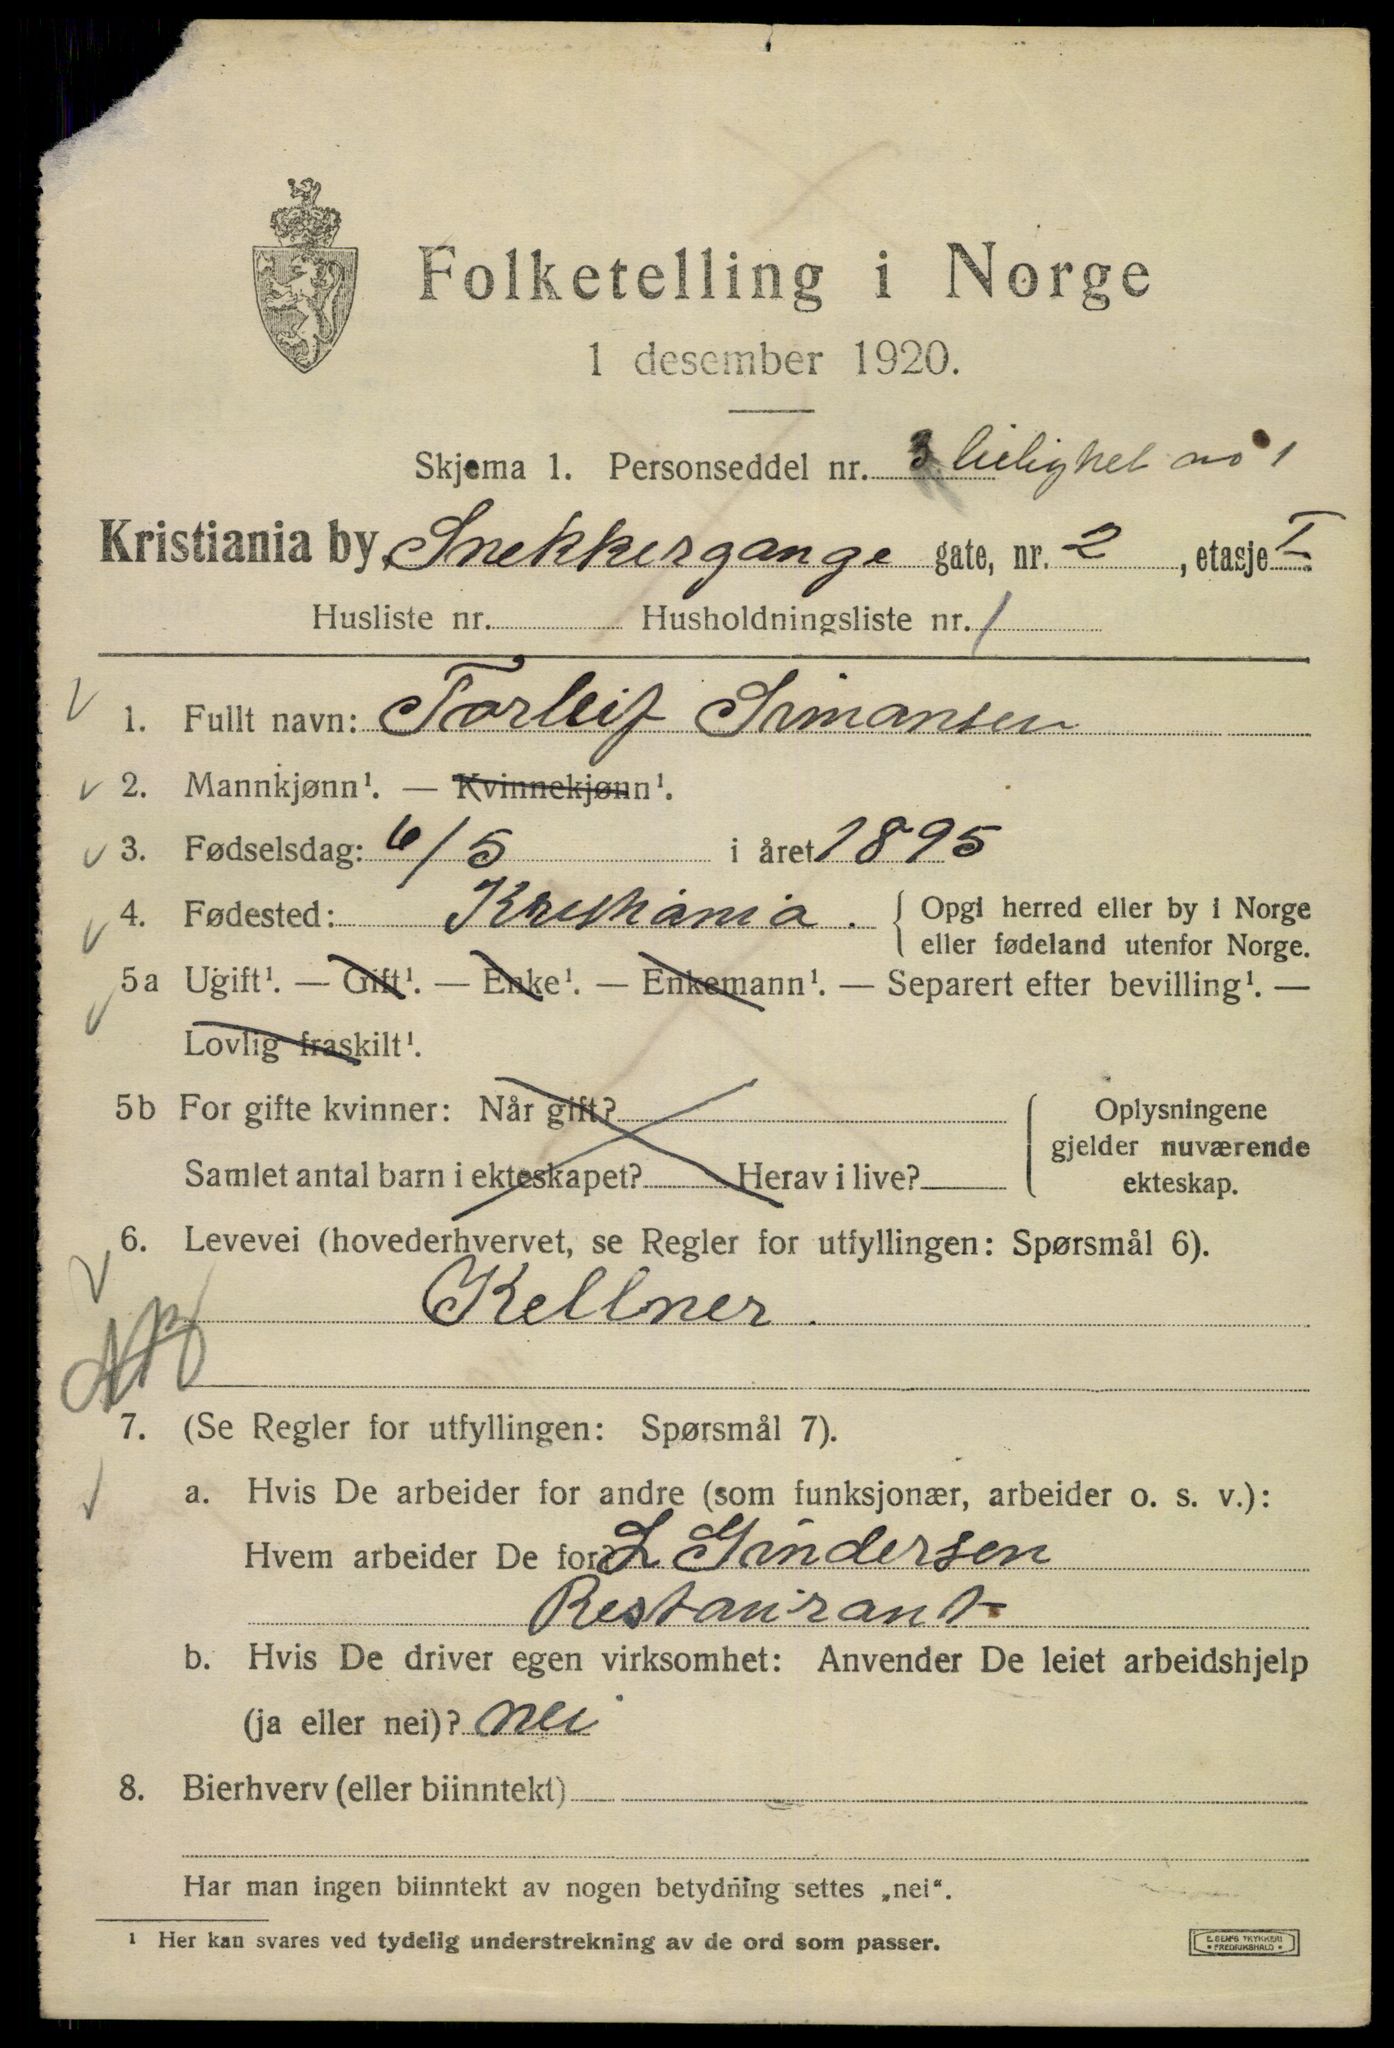 Folketelling i Norge
1 desember 1920.
Skjema 1. Personseddel nr. 3 leilighet no 1
Kristiania by, Snekkergange gate, nr. 2, etasje I
Husliste nr. Husholdningsliste nr. 1
1. Fullt navn: Torleif Simansen
2. Mannkjønn¹. — Kvinnekjønn¹.
3. Fødselsdag: 6/5 i året 1895
4. Fødested: Kristiania. { Opgi herred eller by i Norge
eller fødeland utenfor Norge.
5a Ugift¹. — Gift¹. — Enke¹. — Enkemann¹. — Separert efter bevilling¹. —
Lovlig fraskilt¹.
5b For gifte kvinner: Når gift? Oplysningene
gjelder nuværende
Samlet antal barn i ekteskapet? Herav i live? ekteskap.
6. Levevei (hovederhvervet, se Regler for utfyllingen: Spørsmål 6).
Kellner.
7. (Se Regler for utfyllingen: Spørsmål 7).
a. Hvis De arbeider for andre (som funksjonær, arbeider o. s. v.):
Hvem arbeider De for? L Gundersen
Restaurant
b. Hvis De driver egen virksomhet: Anvender De leiet arbeidshjelp
(ja eller nei)? nei
8. Bierhverv (eller biinntekt)
Har man ingen biinntekt av nogen betydning settes „nei“.
¹ Her kan svares ved tydelig understrekning av de ord som passer.
FREDRIKSHALD